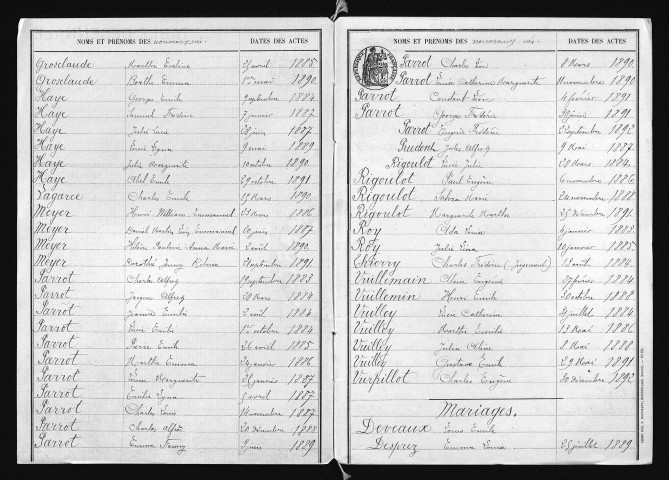 NOMS ET PRÉNOMS DES nouveaux-nés. DATES DES ACTES
Grosclaude Marthe Evelina 21 avril 1885
Grosclaude Berthe Emma 1er mai 1892
Haye Georges Emile 9 septembre 1884
Haye Samuel Frédéric 7 janvier 1887
Haye Julie Lucie 28 juin 1887
Haye Lyna 9 mai 1889
Haye Julie Marguerite 10 octobre 1890
Haye Abel Emile 29 octobre 1891
Vagaree Charles Emile 15 Mars 1890
Meyer Henri William Emmanuel 23 Mars 1886
Meyer Daniel Charles Emmanuel 20 juin 1887
Meyer Hélène Pauline Anna Marie 2 avril 1890
Meyer Dorothé Jenny Rebecca 21 septembre 1891
Parrot Charles Alfred 19 septembre 1883
Parrot Jacques Alfred 28 Mars 1884
Parrot Jeanne Emilie 2 avril 1884
Parrot Emile 1er octobre 1884
Parrot Pierre Emile 26 avril 1885
Parrot Marthe Emma 26 janvier 1886
Parrot Emma Marguerite 31 janvier 1887
Parrot Emilie Lyna 5 avril 1887
Parrot Charles Louis 14 novembre 1887
Parrot Charles Alfred 20 décembre 1888
Parrot Emma Fanny 9 juin 1889
NOMS ET PRÉNOMS DES nouveaux-nés. DATES DES ACTES
Parrot Charles 8 Mars 1890
Parrot Catherine Marguerite 11 novembre 1890
Parrot Constant 4 février 1891
Parrot Georges Frédéric février 1891
Parrot Eugène Frédéric 2 septembre 1892
Prudent Jules Alfred 9 Mai 1887
Rigoulot Julie 28 Mars 1884
Rigoulot Paul Eugène 6 novembre 1886
Rigoulot Marie 24 novembre 1888
Rigoulot Marguerite Marthe 25 décembre 1891
Roy Ida janvier 1883
Roy Julie 20 janvier 1885
Thierry Charles Frédéric (jugement) 13 août 1884
Vuillemain Eugénie février 1884
Vuillemin Henri Emile 30 octobre 1888
Vuilley Catherine 31 juillet 1884
Vuilley Marthe Emilie 13 Mai 1886
Vuilley Julia Aline 8 Mai 1888
Vuilley Gustave Emile 29 Mai 1891
Vurpillot Charles Eugène 30 décembre 1892
Mariages.
Deveaux Louis Emile
Desprez Emma 25 juillet 1889